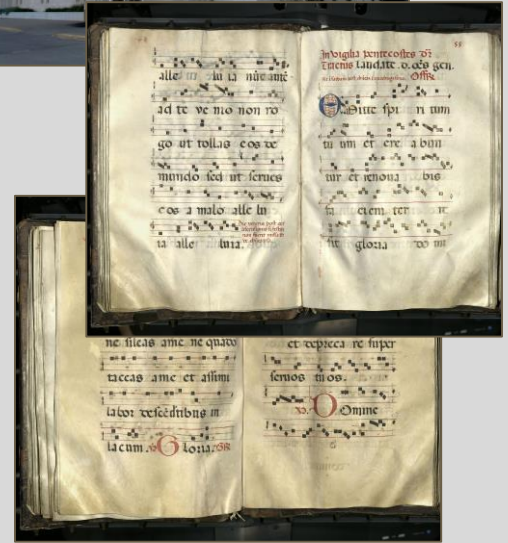 alle lu ia nūc autē
ad te ve nio non ro
go ut tollas eos de
mundo sed ut serues
eos a malo alle lu
ia alle luia.
55
In vigilia pentecostes
laudate. o. gen.
Offꝫ.
Emitte spi ri tum
tu um et cre abun
tur et renoua bis
fa ciem ter re
sit gloria do mi
ne sileas ame ne quādo
taceas ame et assimi
labor descēdētibus in
lacum. Gloria.
et depreca re super
seruos tuos.
Domine